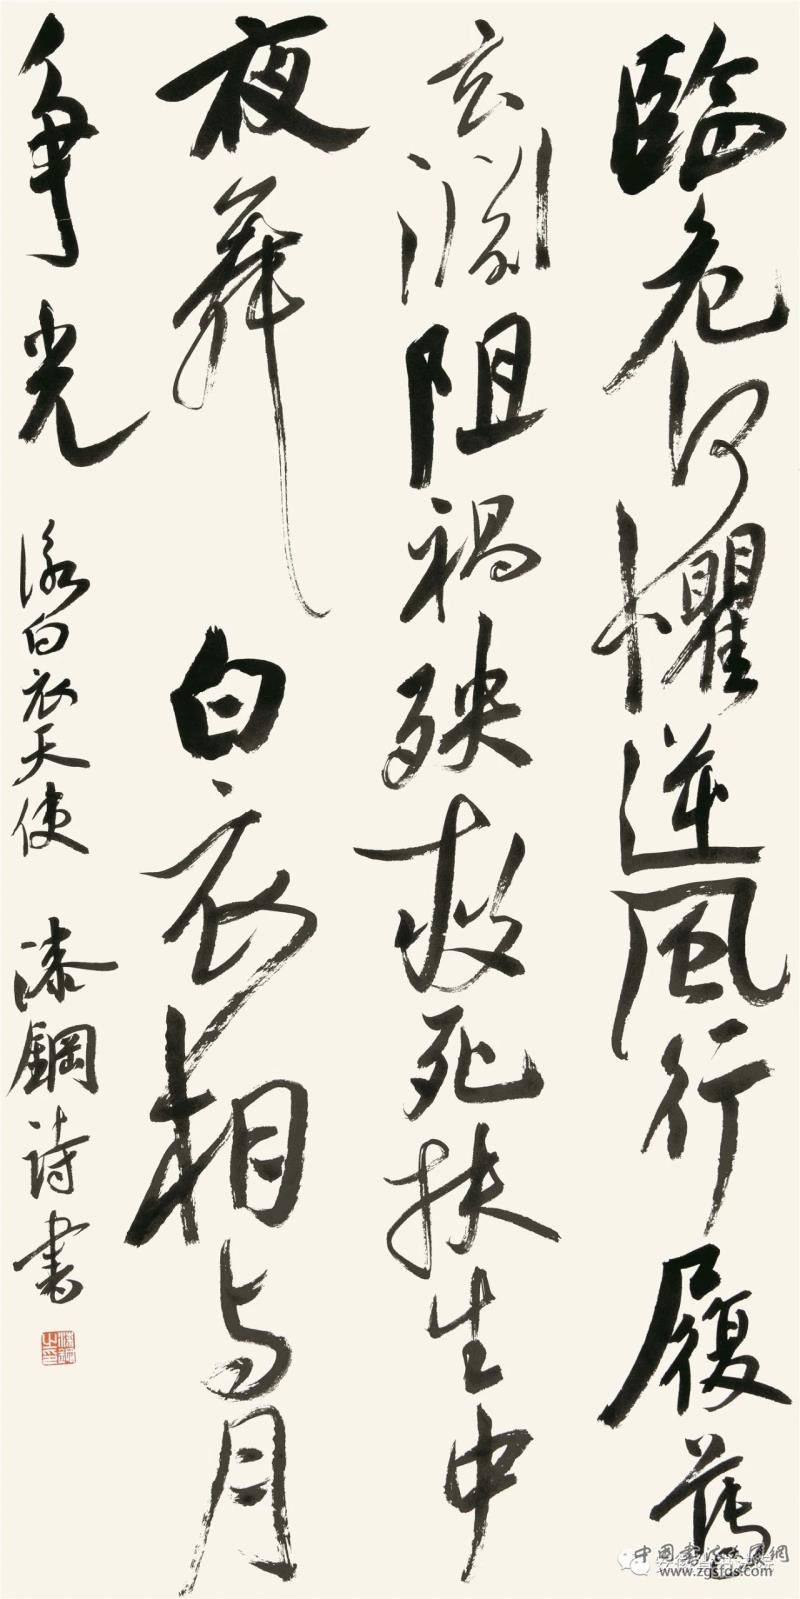 臨危何懼逆風行履薄
玄淵阻禍殃救死扶生中
夜舞白衣相与月
争光
詠白衣天使 漆鋼詩書
中國書法大展網
www.zgsfds.com